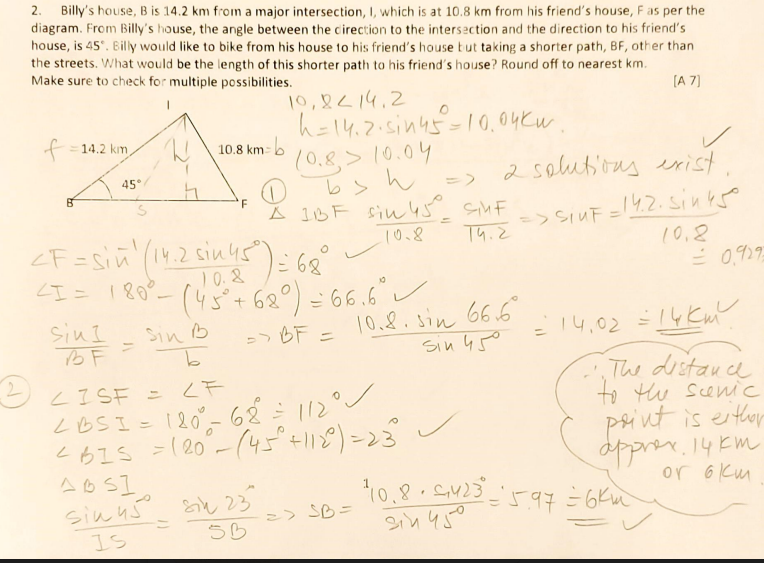 2. Billy's house, B is 14.2 km from a major intersection, I, which is at 10.8 km from his friend's house, F as per the
diagram. From Billy's house, the angle between the direction to the intersection and the direction to his friend's
house, is 45°. Billy would like to bike from his house to his friend's house but taking a shorter path, BF, other than
the streets. What would be the length of this shorter path to his friend's house? Round off to nearest km.
Make sure to check for multiple possibilities. [A 7]
10,8 < 14.2
h = 14.2·sin45° = 10.04 km.
10.8 > 10.04
b > h => 2 solutions exist.
I
f = 14.2 km
h
10.8 km = b
45°
B
S
F
① △ IBF sin45°/10.8 = sinF/14.2 => sinF = 14.2·sin45°/10.8 ≐ 0.929
∠F = sin⁻¹(14.2 sin45°/10.8) ≐ 68°
∠I = 180° - (45° + 68°) ≐ 66.6°
sin I/BF = sin B/b => BF = 10.8·sin 66.6°/sin 45° ≐ 14.02 ≐ 14 km
② ∠ISF = ∠F
∠BSI = 180° - 68° ≐ 112°
∠BIS = 180° - (45° + 112°) = 23°
△BSI
sin 45°/IS = sin 23°/SB => SB = 10.8·sin23°/sin 45° ≐ 5.97 ≐ 6km
∴ The distance
to the scenic
point is either
approx. 14 km
or 6 km